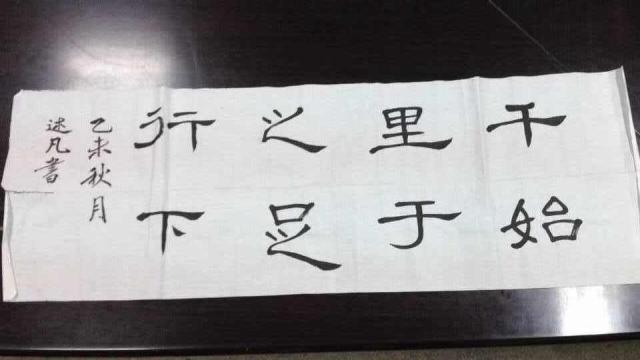 千里之行
始于足下
乙未秋月
述凡書